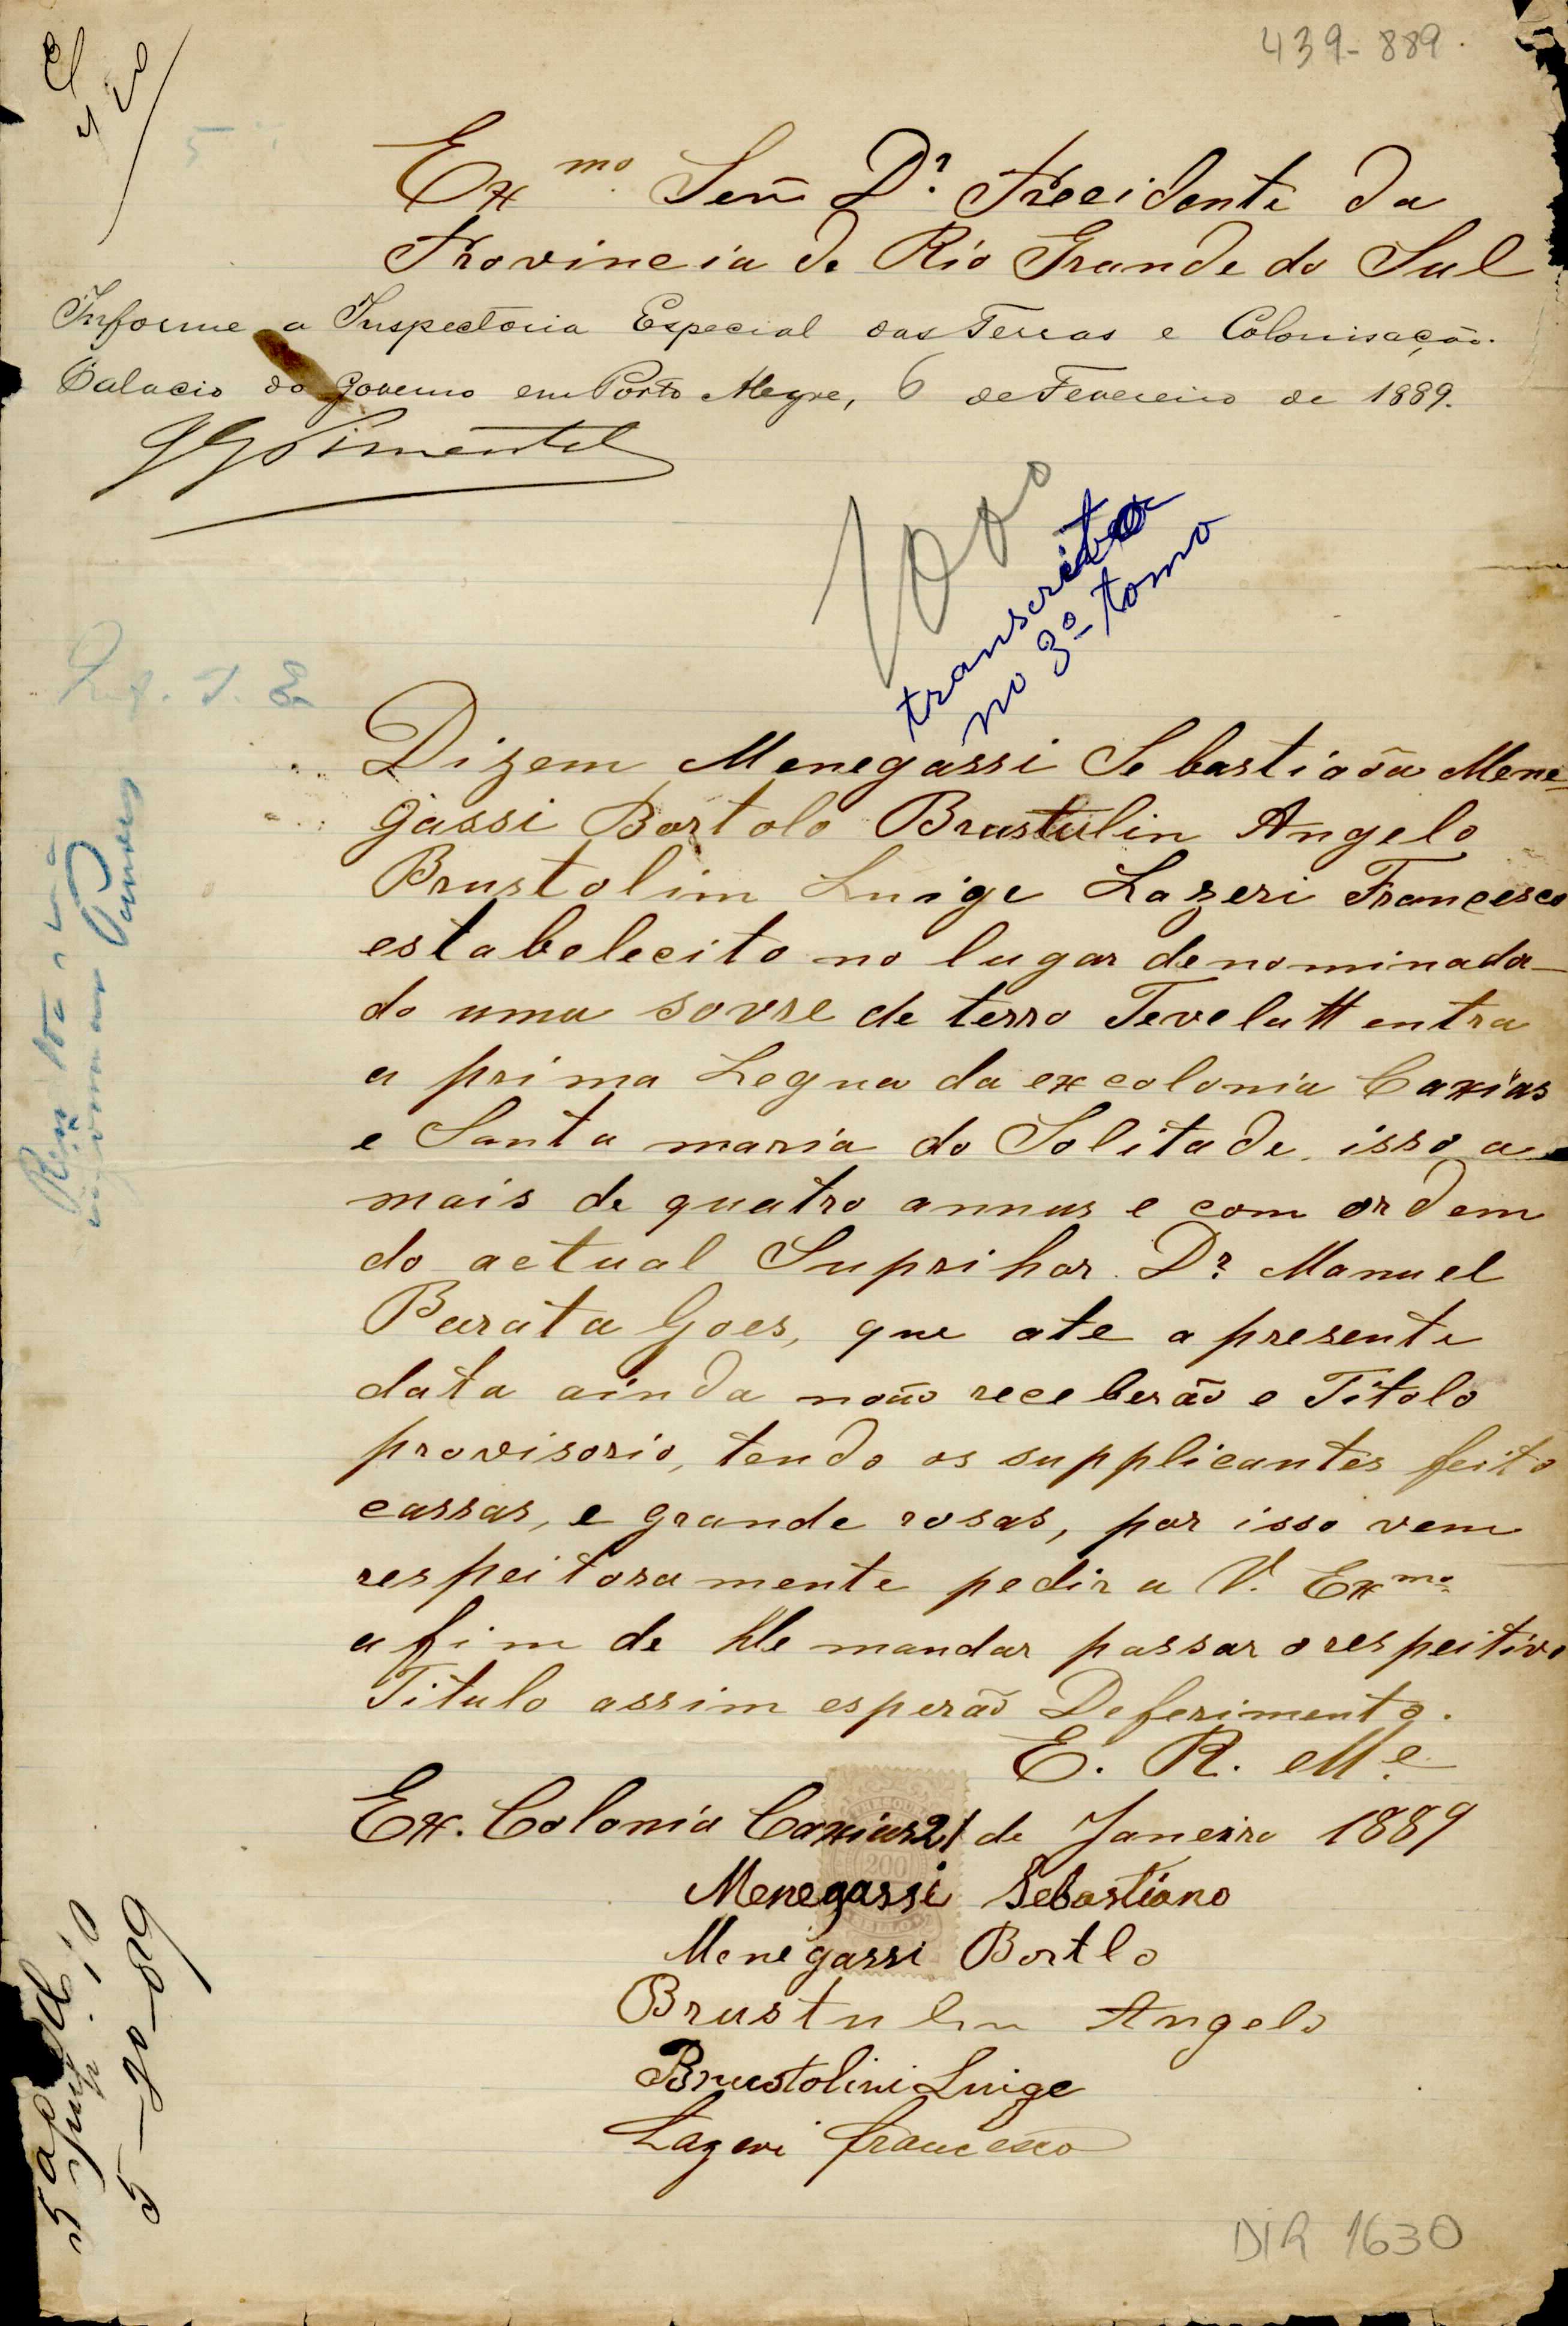 439-889.
Ex mo Señ Dr. Precidente da
Provincia de Rio Grande do Sul
Informe a Inspectoria Especial das Terras e Colonisação.
Palacio do Governo em Porto Alegre, 6 de Fevereiro de 1889.
Pimentel
transcrito
no 3º tomo
Dizem Menegassi Sebastiaõa Mene-
gassi Bortolo Brustulin Angelo
Brustolim Luige Lazeri Francesco
estabelecito no lugar denominada-
do uma sovre de terro Tevelatt entra
a prima Legua da ex colonia Caxias
e Santa maria do Solitade, isso a
mais de quatro annus e com ordem
do actual Suprihor Dr. Manuel
Barata Goes, que ate a presente
data ainda noão receberão e Titolo
provisorio, tendo os supplicantes feito
cassas, e grande rosas, por isso vem
respeitosamente pedir a V. Exmo
a fim de lhe mandar passar o respeitivo
Titulo assim esperão Deferimento.
E. R. Me.
Ex. Colonia Caxias 21 de Janeiro 1889
200
Menegassi Sebastiano
Menegassi Bortlo
Brustulin Angelo
Brustolini Luige
Lazeri Francesco
DIR 1630